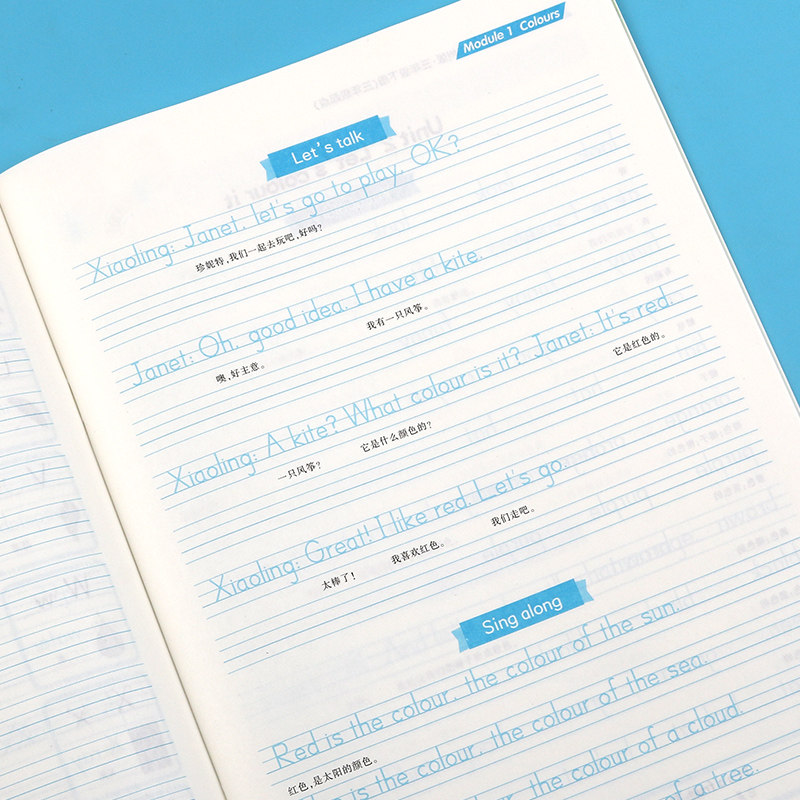 Module 1 Colours
Let's talk
Xiaoling: Janet, let's go to play, OK?
珍妮特,我们一起去玩吧,好吗?
Janet: Oh, good idea. I have a kite.
噢,好主意。 我有一只风筝。
Xiaoling: A kite? What colour is it? Janet: It's red.
一只风筝? 它是什么颜色的? 它是红色的。
Xiaoling: Great! I like red. Let's go.
太棒了! 我喜欢红色。 我们走吧。
Sing along
Red is the colour, the colour of the sun.
红色,是太阳的颜色。
is the colour, the colour of the sea.
the colour, the colour of a cloud.
of a tree.